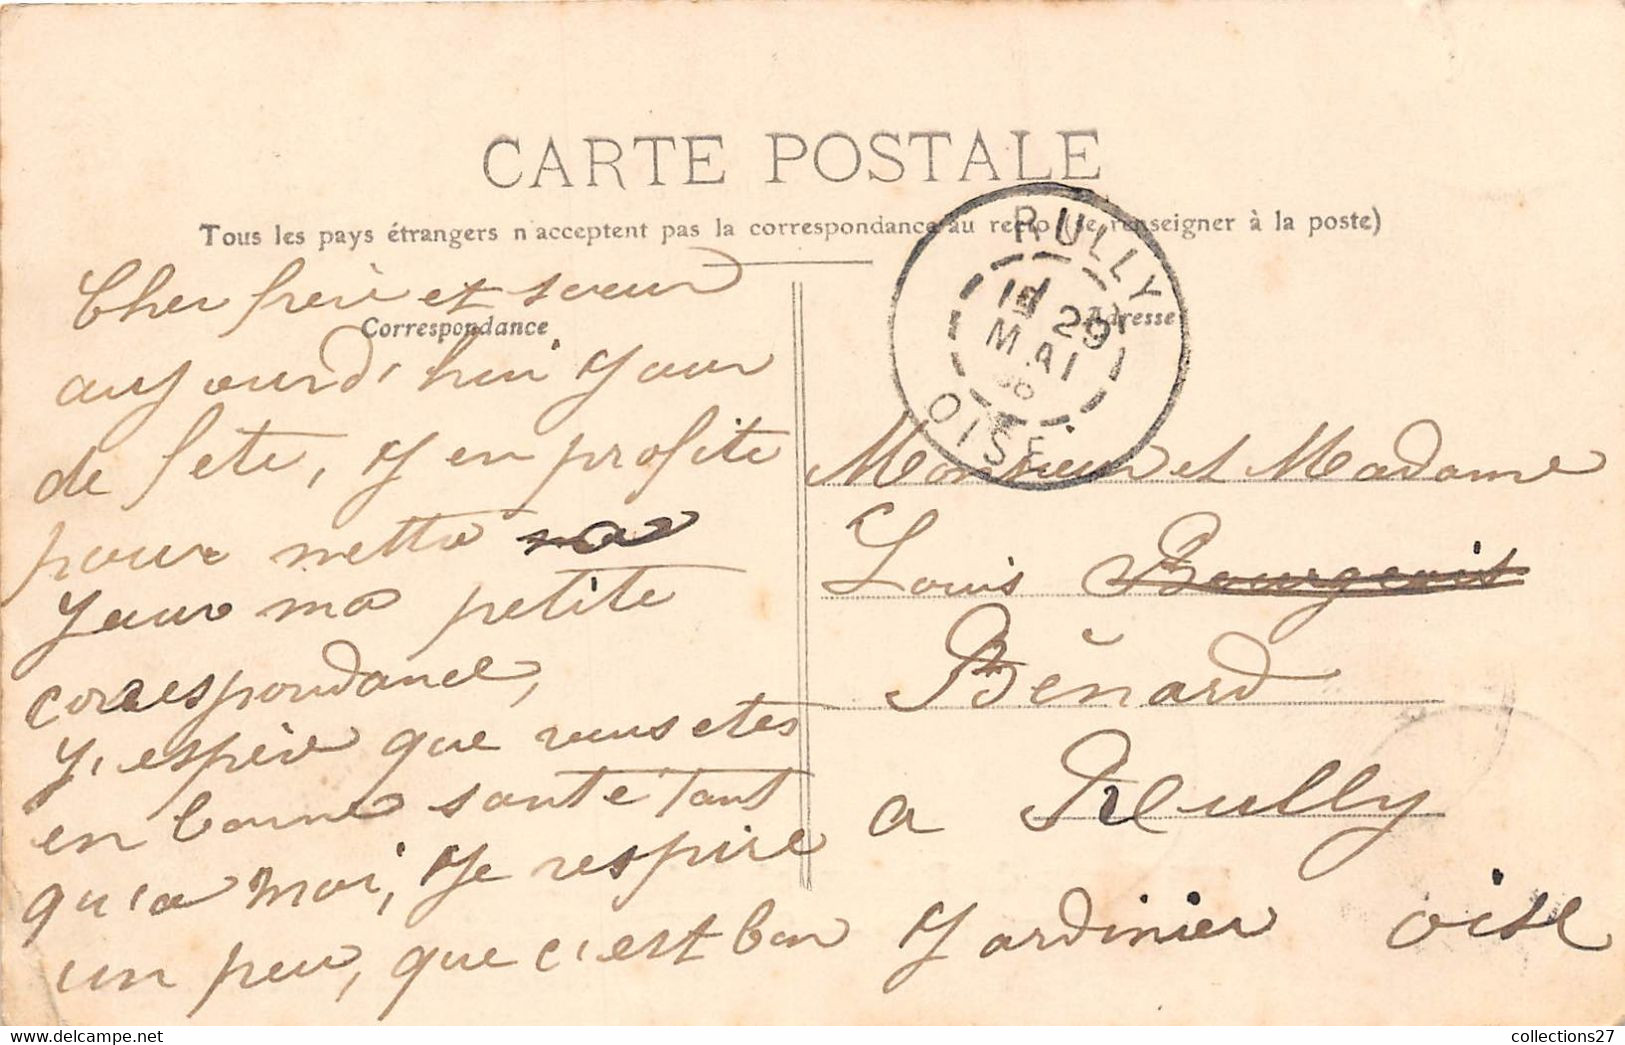 CARTE POSTALE
Tous les pays étrangers n'acceptent pas la correspondance au recto (se renseigner à la poste)
Correspondance
Adresse
RULLY
29
MAI
OISE
Cher frère et sœur
aujourd'hui jour
de fete, j en profite
pour mettre
jour ma petite
correspondance,
j'espère que vous etes
en bonne santé tant
qu'a moi, je respire
un peu, que c'est bon
Monsieur et Madame
Louis Bourgeois
Bénard
a Rully
Jardinier Oise
collections27